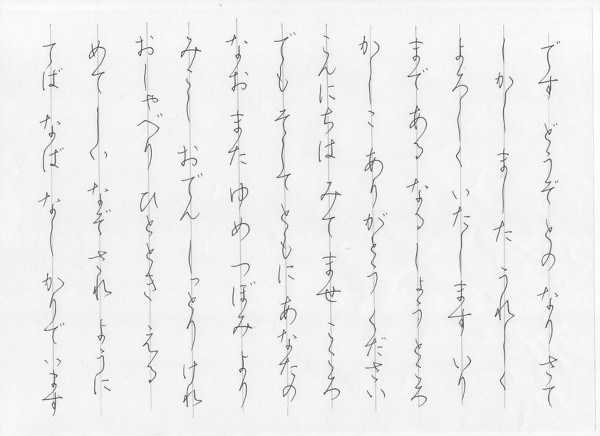 です どうぞ との なり さて
しかし ました うれしく
よろしく いたします いり
まで ある なる しょう ところ
かしこ ありがとう ください
こんにちは みて ませ こころ
でも そして ともに あなたの
なお また ゆめ つぼみ より
みこし おでん しっとり けれ
おしゃべり ひととき える
めてしい なぞ され ように
てば なば なし かり でいます